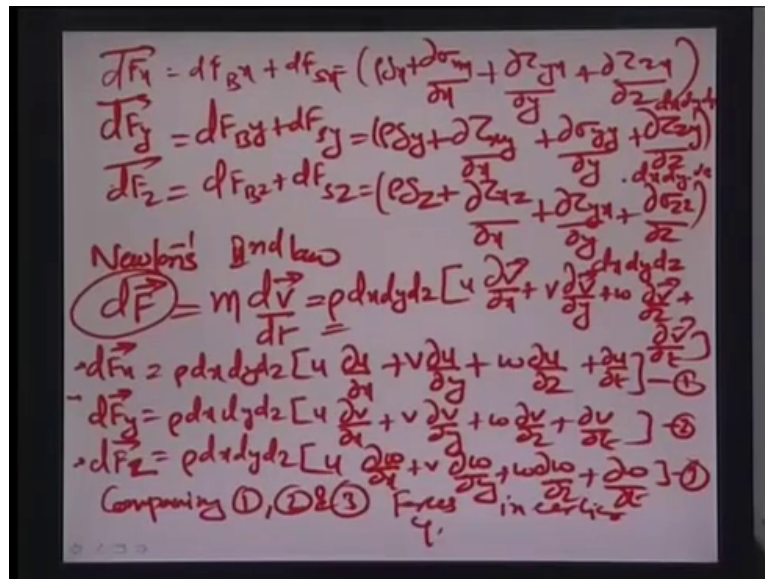 dFx = dF_Bx + dF_Sx = (ρgx + ∂σxx/∂x + ∂τyx/∂y + ∂τzx/∂z) dxdydz
dFy = dF_By + dF_Sy = (ρgy + ∂τxy/∂x + ∂σyy/∂y + ∂τzy/∂z) · dxdydz
dFz = dF_Bz + dF_Sz = (ρgz + ∂τxz/∂x + ∂τyx/∂y + ∂σzz/∂z) dxdydz
Newton's IInd law
dF = m dv/dt = ρ dxdydz [u ∂V/∂x + v ∂V/∂y + w ∂V/∂z + ∂V/∂t]
dFx = ρ dxdydz [u ∂u/∂x + v ∂u/∂y + w ∂u/∂z + ∂u/∂t] - ①
dFy = ρ dxdydz [u ∂v/∂x + v ∂v/∂y + w ∂v/∂z + ∂v/∂t] - ②
dFz = ρ dxdydz [u ∂w/∂x + v ∂w/∂y + w ∂w/∂z + ∂w/∂t] - ③
Comparing ①, ② & ③ Forces in earlier